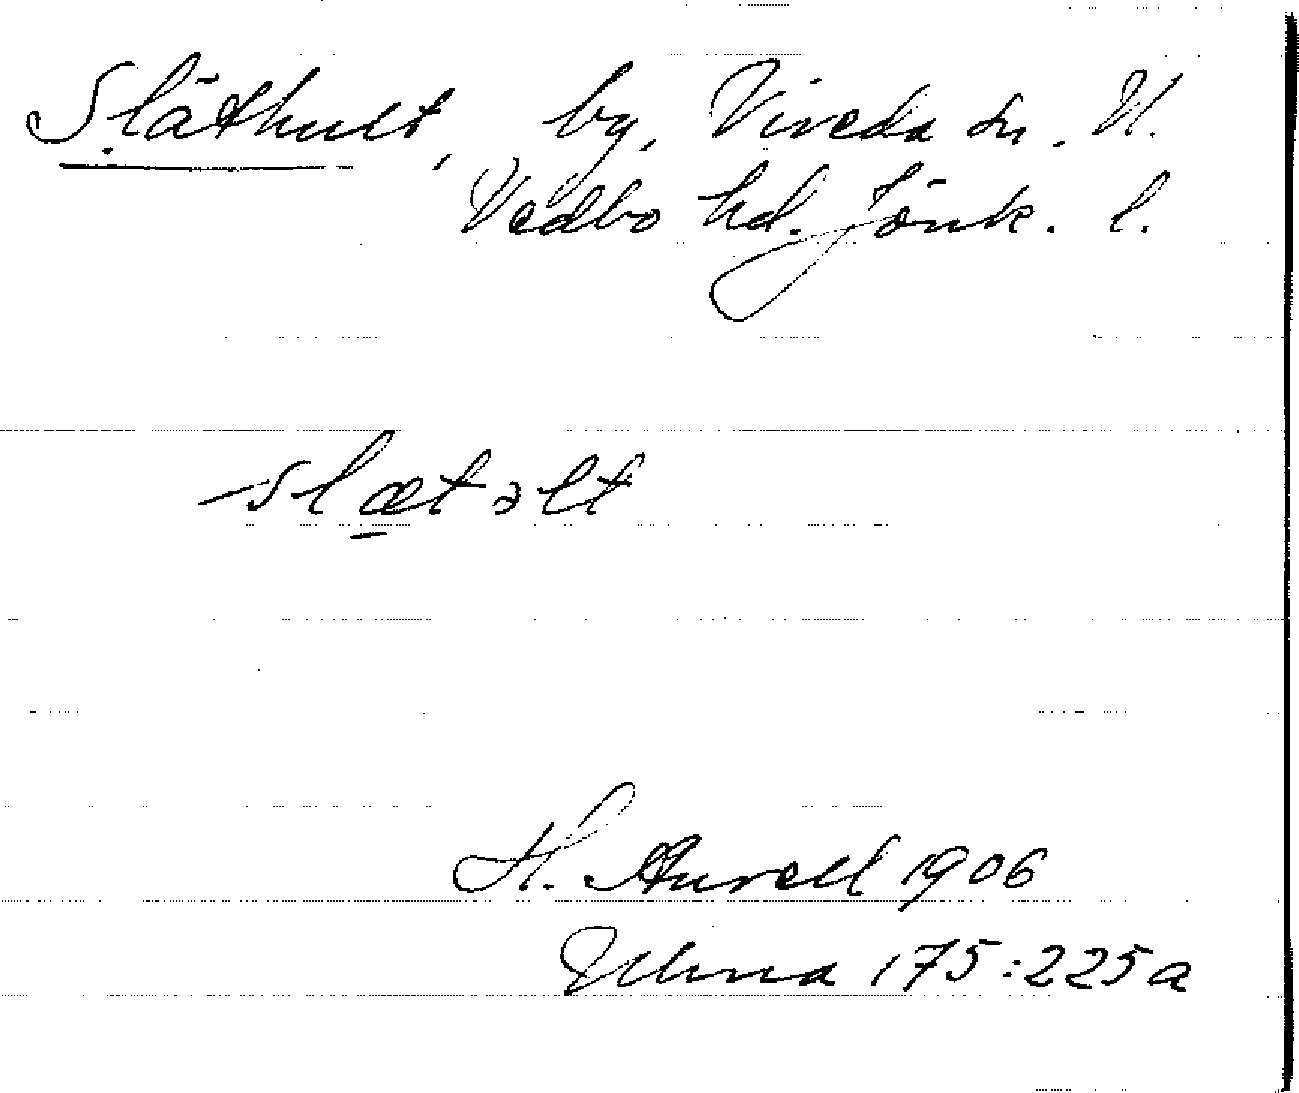 Släthult, by, Vireda sn. N.
Vedbo hd. Jönk. l.
slætəlt
H. Aurell 1906
175:225a